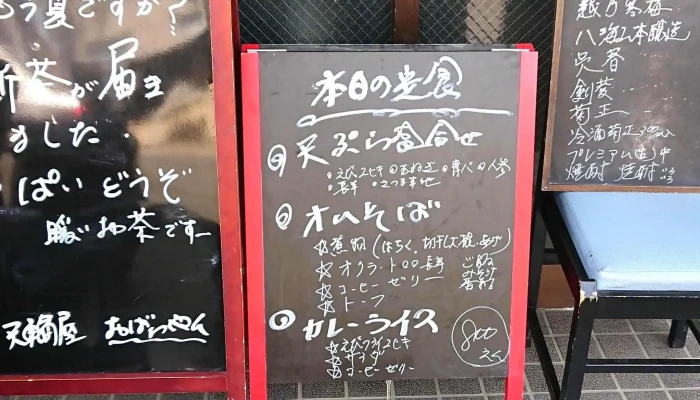 もう夏ですか?
新茶が届き
ました.
ぱい どうぞ
暖い お茶ですー
天輪屋 おばちゃん
本日の定食
天ぷら盛合せ
・えび2ヒキ ・玉ねぎ ・青バ ・人参
・長芋 ・さつま芋
オムそば
☆煮物 (はちく、切干大根、あげ)
☆オクラ・トロロ長芋
☆コーヒーゼリー
☆トーフ
ごはん
みそ汁
香物
カレーライス
☆えびフライ2ヒキ
☆サラダ
☆コーヒーゼリー
800
えん
越乃寒梅
八海山本醸造
呉春
剣菱
菊正
冷酒菊正300ml
プレミアム(生)中
焼酎